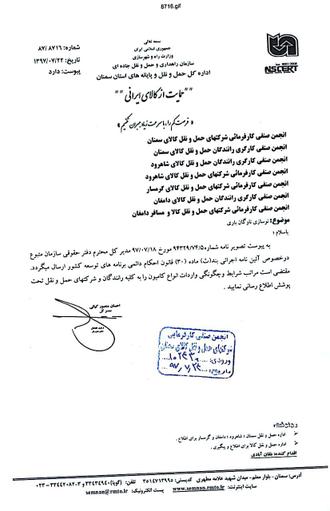 8716.gif
بسمه تعالی
جمهوری اسلامی ایران
وزارت راه و شهرسازی
سازمان راهداری و حمل و نقل جاده ای
اداره کل حمل و نقل و پایانه های استان سمنان
شماره: ۸۷/۸۷۱۶
تاریخ: ۱۳۹۷/۰۷/۲۲
پیوست: دارد
NSCERT
"حمایت از کالای ایرانی"
انجمن صنفی کارفرمائی شرکتهای حمل و نقل کالای سمنان
انجمن صنفی کارگری رانندگان حمل و نقل کالای سمنان
انجمن صنفی کارگری رانندگان حمل و نقل کالای شاهرود
انجمن صنفی کارفرمائی شرکتهای حمل و نقل کالای شاهرود
انجمن صنفی کارفرمائی شرکتهای حمل و نقل کالای گرمسار
انجمن صنفی کارگری رانندگان حمل و نقل کالای دامغان
انجمن صنفی کارفرمائی شرکتهای حمل و نقل کالا و مسافر دامغان
موضوع: نوسازی ناوگان باری
باسلام؛
به پیوست تصویر نامه شماره ۹۴۳۲۹/۷۴/۵۰ مورخ ۹۷/۰۷/۱۸ مدیر کل محترم دفتر حقوقی سازمان متبوع
درخصوص آئین نامه اجرائی بند(ث) ماده (۳۰) قانون احکام دائمی برنامه های توسعه کشور ارسال میگردد.
مقتضی است مراتب شرایط و چگونگی واردات انواع کامیون را به کلیه رانندگان و شرکتهای حمل و نقل تحت
پوشش اطلاع رسانی نمایید.
احسان منصور کیائی
مدیر کل
انجمن صنفی کارفرمایی
شرکتهای حمل و نقل کالای سمنان
رونوشت:
اداره حمل و نقل سمنان؛ شاهرود؛ دامغان و گرمسار برای اطلاع.
اداره حمل و نقل کالا برای اطلاع و پیگیری.
آدرس: سمنان - بلوار معلم - میدان شهید علامه مطهری کدپستی: ۳۵۱۴۷۱۳۹۹۵
سایت اینترنت: www.semnan.rmto.ir پست الکترونیک: semnan@rmto.ir